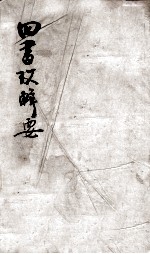 四書改解要